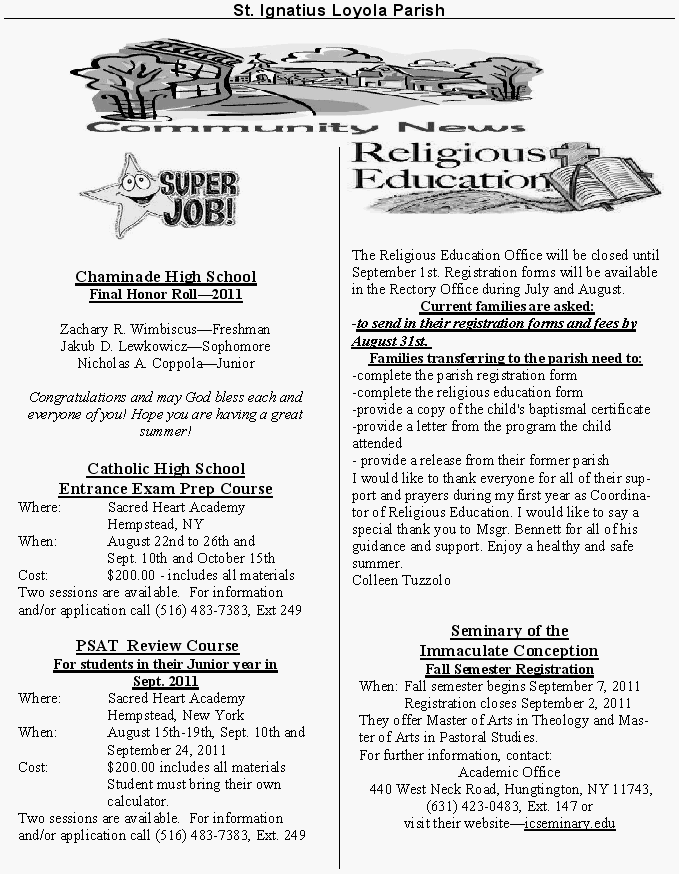 St. Ignatius Loyola Parish
Community News
SUPER
JOB!
Chaminade High School
Final Honor Roll—2011
Zachary R. Wimbiscus—Freshman
Jakub D. Lewkowicz—Sophomore
Nicholas A. Coppola—Junior
Congratulations and may God bless each and
everyone of you! Hope you are having a great
summer!
Catholic High School
Entrance Exam Prep Course
Where: Sacred Heart Academy
Hempstead, NY
When: August 22nd to 26th and
Sept. 10th and October 15th
Cost: $200.00 - includes all materials
Two sessions are available. For information
and/or application call (516) 483-7383, Ext 249
PSAT Review Course
For students in their Junior year in
Sept. 2011
Where: Sacred Heart Academy
Hempstead, New York
When: August 15th-19th, Sept. 10th and
September 24, 2011
Cost: $200.00 includes all materials
Student must bring their own
calculator.
Two sessions are available. For information
and/or application call (516) 483-7383, Ext. 249
Religious
Education
The Religious Education Office will be closed until
September 1st. Registration forms will be available
in the Rectory Office during July and August.
Current families are asked:
-to send in their registration forms and fees by
August 31st.
Families transferring to the parish need to:
-complete the parish registration form
-complete the religious education form
-provide a copy of the child's baptismal certificate
-provide a letter from the program the child
attended
- provide a release from their former parish
I would like to thank everyone for all of their sup-
port and prayers during my first year as Coordina-
tor of Religious Education. I would like to say a
special thank you to Msgr. Bennett for all of his
guidance and support. Enjoy a healthy and safe
summer.
Colleen Tuzzolo
Seminary of the
Immaculate Conception
Fall Semester Registration
When: Fall semester begins September 7, 2011
Registration closes September 2, 2011
They offer Master of Arts in Theology and Mas-
ter of Arts in Pastoral Studies.
For further information, contact:
Academic Office
440 West Neck Road, Hungtington, NY 11743,
(631) 423-0483, Ext. 147 or
visit their website—icseminary.edu